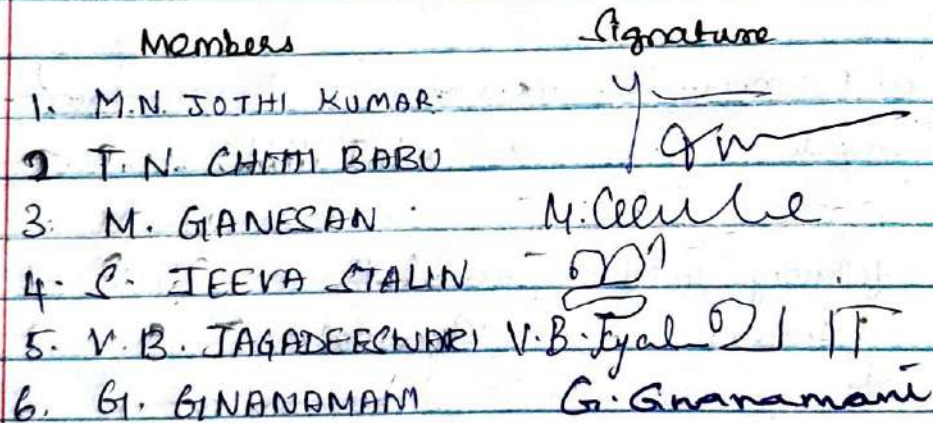 Members Signature
1. M.N. JOTHI KUMAR.
2 T. N. CHETTI BABU
3. M. GANESAN
4. S. JEEVA STALIN
5. V. B. JAGADEESWARI V.B.
6. G. GNANAMANI G. Gnanamani